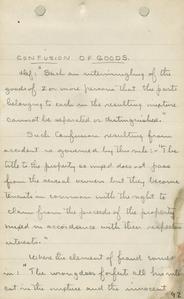 CONFUSION OF GOODS.
Def: "Such an intermingling of the
goods of 2 or more persons that the parts
belonging to each in the resulting mixture
cannot be separated or distinguished."
Such Confusion resulting from
accident is governed by this rule: "The
title to the property so mixed does not pass
from the several owners but they become
tenants in common with the right to
claim from the proceeds of the property
mixed in accordance with their respective
interests."
Where the element of fraud comes
in: "The wrongdoer forfeits all his inte
est in the mixture and the innocent
92